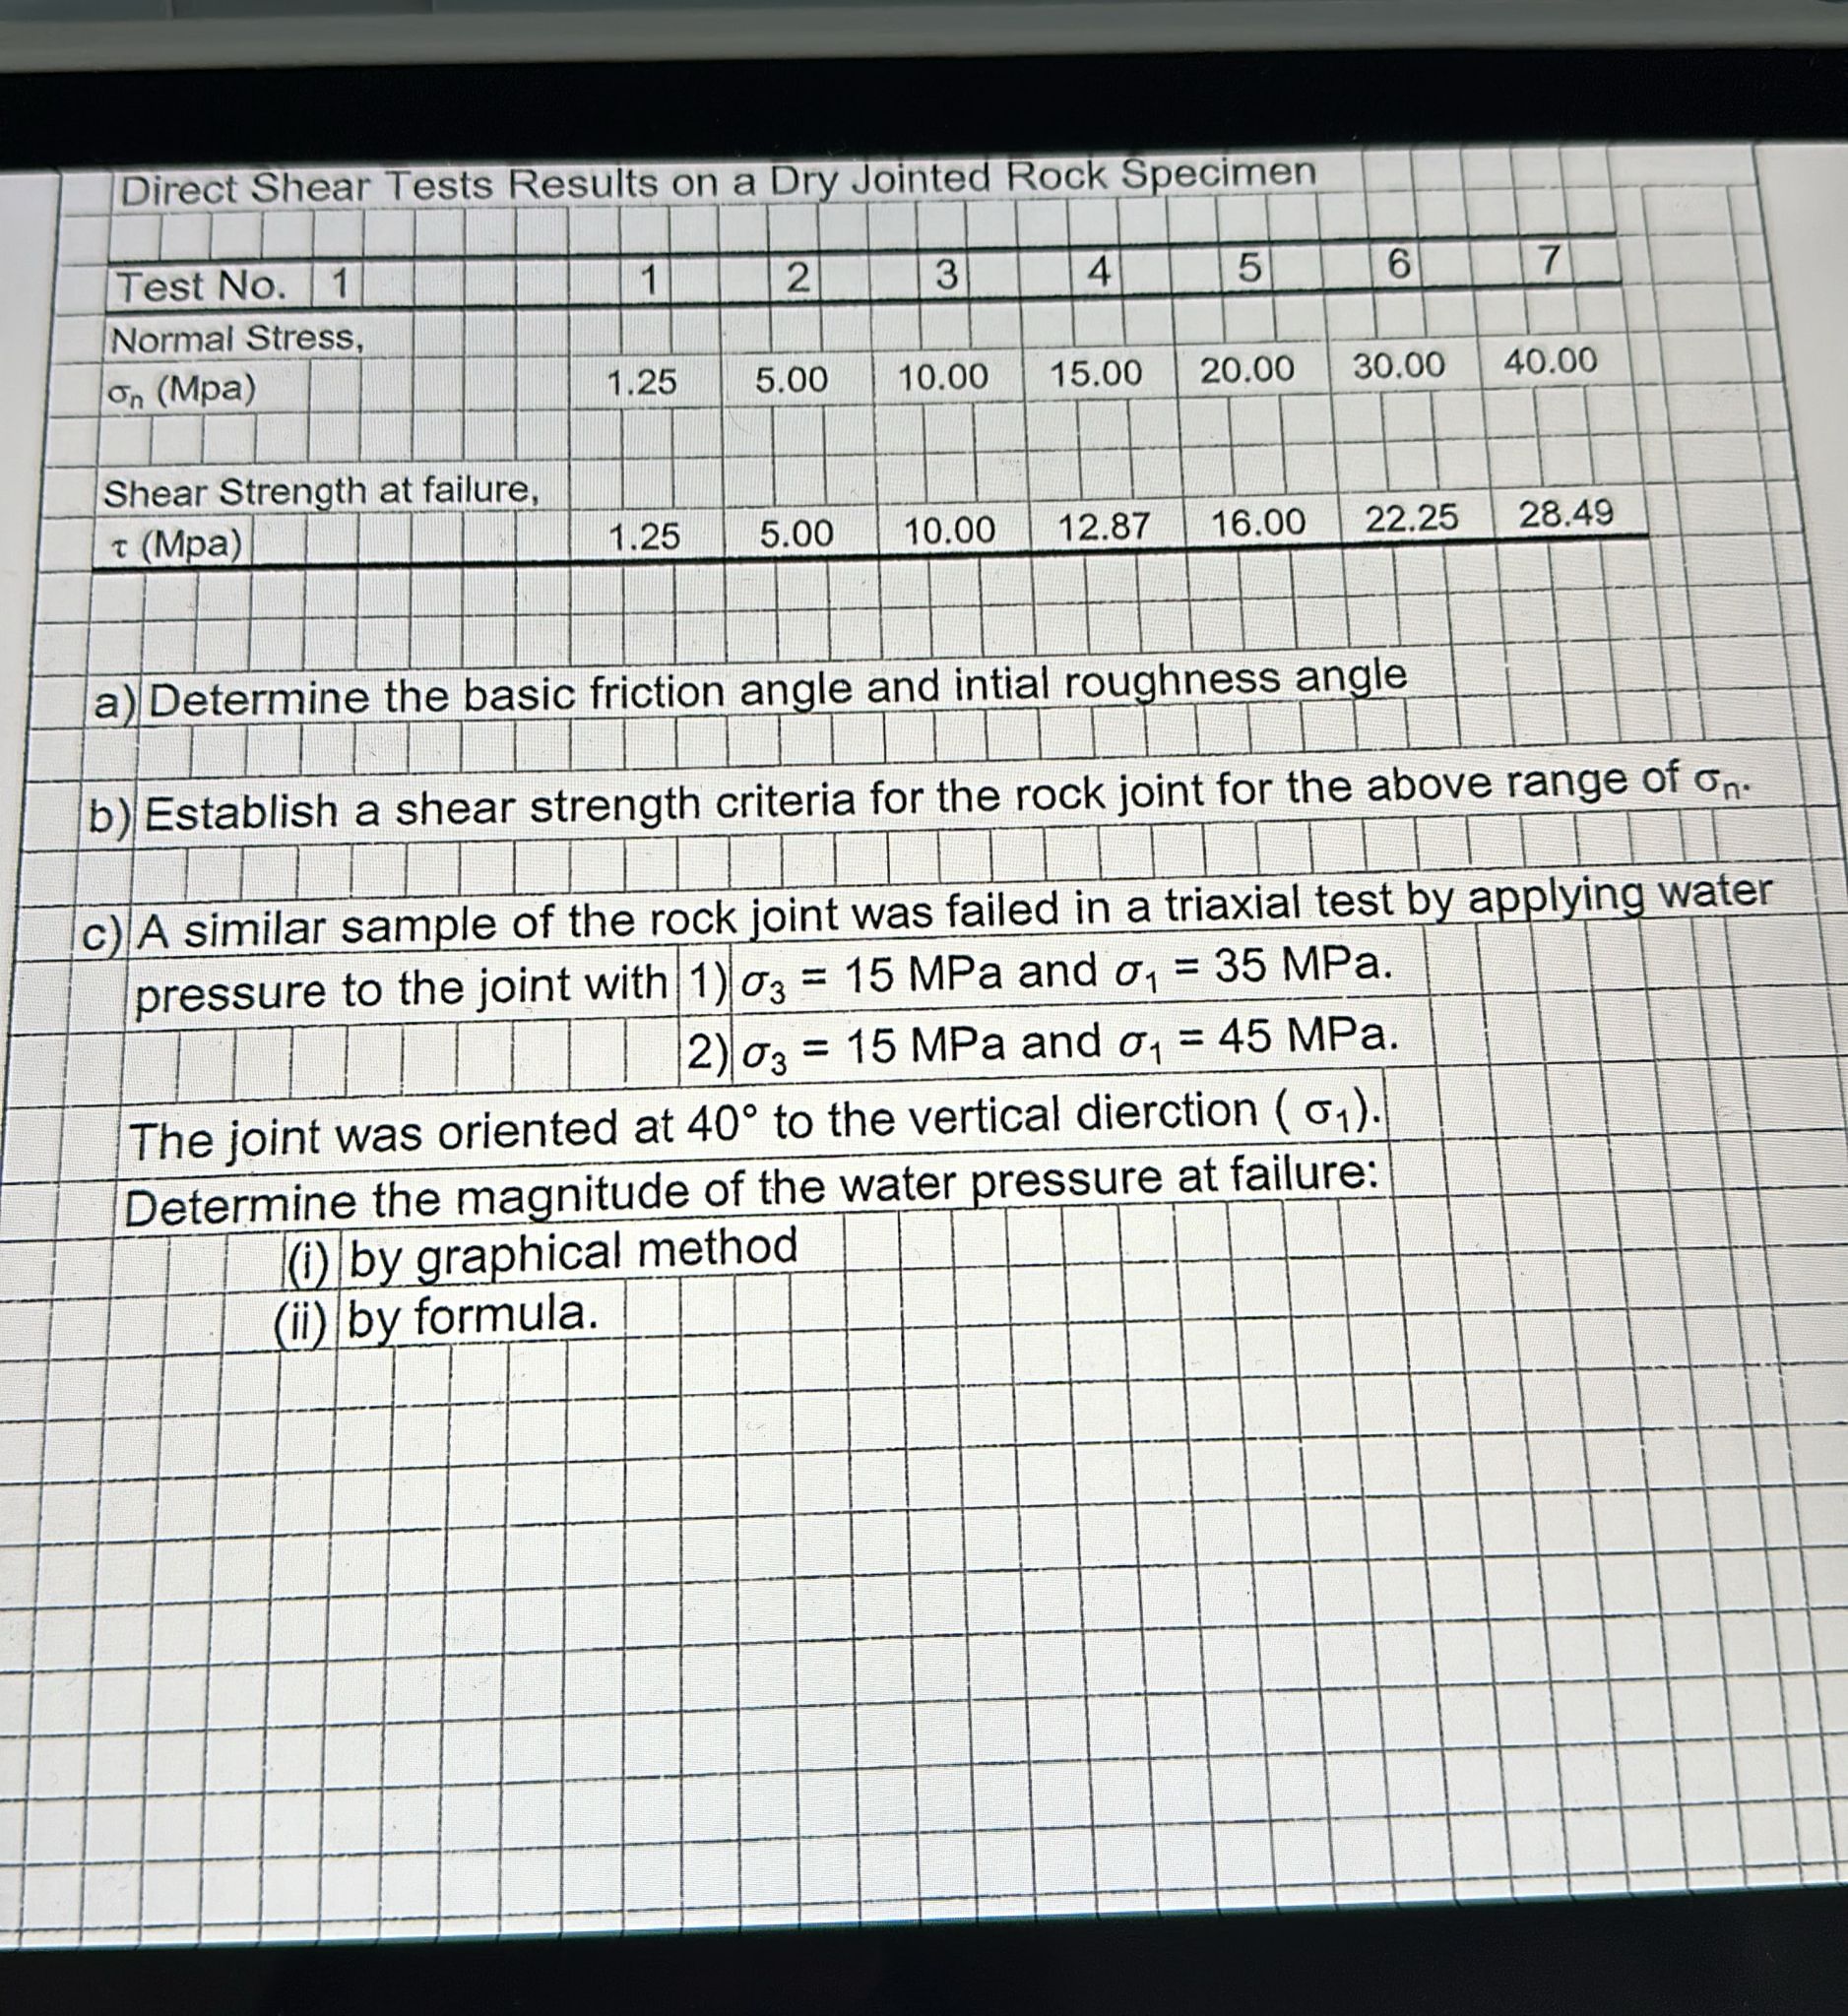 Direct Shear Tests Results on a Dry Jointed Rock Specimen
Test No. 1 1 2 3 4 5 6 7
Normal Stress,
σn (Mpa) 1.25 5.00 10.00 15.00 20.00 30.00 40.00
Shear Strength at failure,
τ (Mpa) 1.25 5.00 10.00 12.87 16.00 22.25 28.49
a) Determine the basic friction angle and intial roughness angle
b) Establish a shear strength criteria for the rock joint for the above range of σn.
c) A similar sample of the rock joint was failed in a triaxial test by applying water
pressure to the joint with 1) σ3 = 15 MPa and σ1 = 35 MPa.
2) σ3 = 15 MPa and σ1 = 45 MPa.
The joint was oriented at 40° to the vertical dierction ( σ1).
Determine the magnitude of the water pressure at failure:
(i) by graphical method
(ii) by formula.